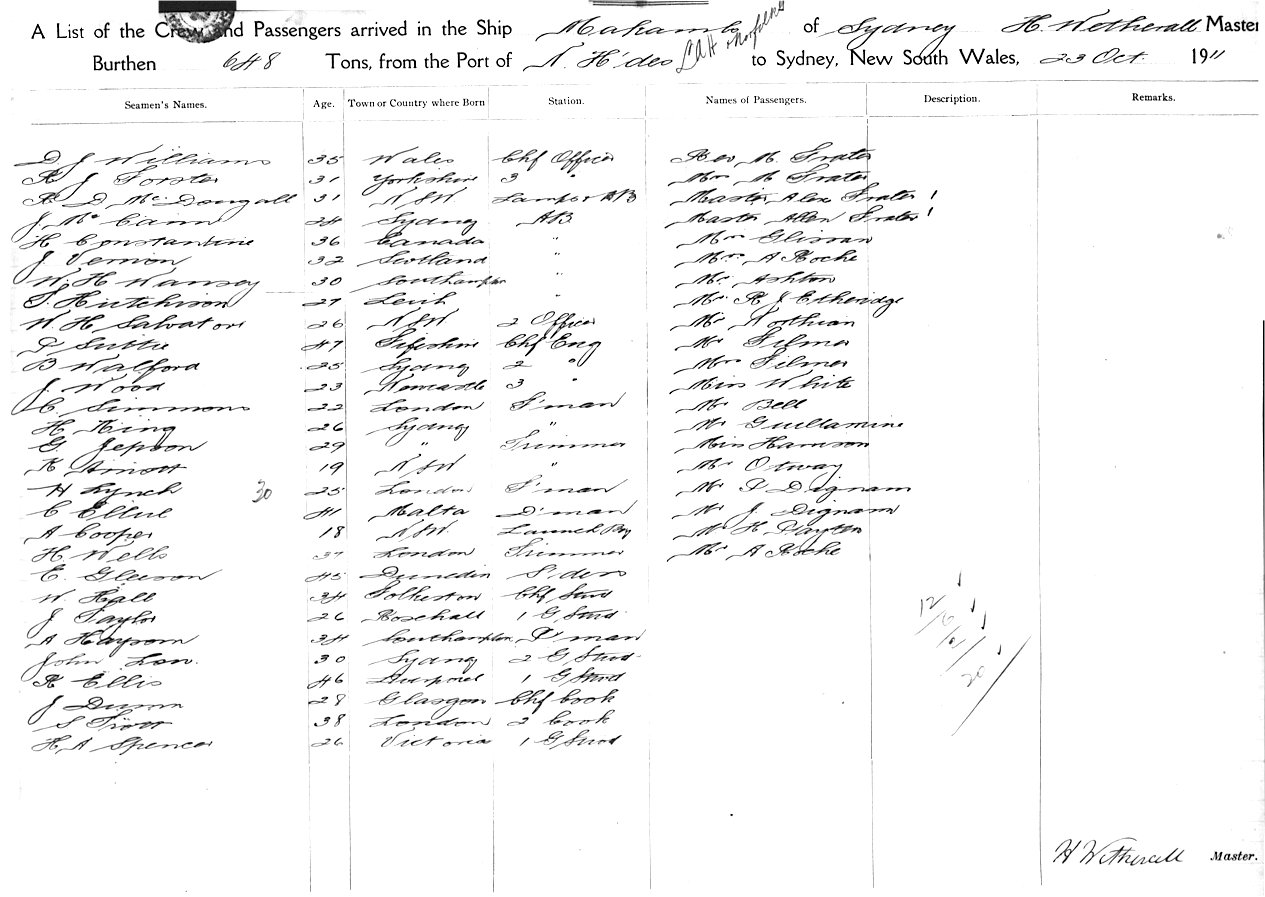 A List of the Crew and Passengers arrived in the Ship Makambo of Sydney H. Wetherall Master
Burthen 648 Tons, from the Port of N. H'des LdH & Norfolk to Sydney, New South Wales, 23 Oct. 1911
Seamen's Names. Age. Town or Country where Born Station. Names of Passengers. Description. Remarks.
D J Williams 35 Wales Chf Officer Rev M. Frater
R J Forster 31 Yorkshire 3 " Mrs M Frater
R D McDougall 31 NSW Lamps & AB Master Alex Frater 1
J McCann 24 Sydney AB Master Allen Frater 1
H Constantine 36 Canada " Mrs
J Vernon 32 Scotland " Mrs A Roche
W H Wansey 30 Southampton " Mr Ashton
T. Hutchison 27 Leith " Mr R J Etheridge
W. H. Salvatori 26 NSW 2 Officer Mr
P Suttie 47 Fifeshire Chf Eng Mr Filmer
B Walford 25 Sydney 2 " Mrs Filmer
J Wood 23 Newcastle 3 " Miss White
C. Simmons 22 London F'man Mr Bell
H King 26 Sydney " Mr Guillamine
G. Jepson 29 " Trimmer Miss Harrison
R Arnott 19 NSW " Mr Otway
H Lynch 30 25 London F'man Mr P Dignam
C Ellul 41 Malta D'man Mr J. Dignam
A Cooper 18 NSW Launch Boy Mr H Payton
H Wells 37 London Trimmer Mr A Roche
E. Gleeson 45 Dunedin S'dess
W. Hall 34 Folkeston Chf Stwd
J Taylor 26 Rosehall 1 G Stwd
A Haysom 34 Southampton P'man
John Lon. 30 Sydney 2 G Stwd
R Ellis 46 Liverpool 1 G Stwd
J Dunn 28 Glasgow Chf Cook
S Trott 38 London 2 Cook
H A Spencer 26 Victoria 1 G Stwd
12/6/2/20
H Wetherall Master.